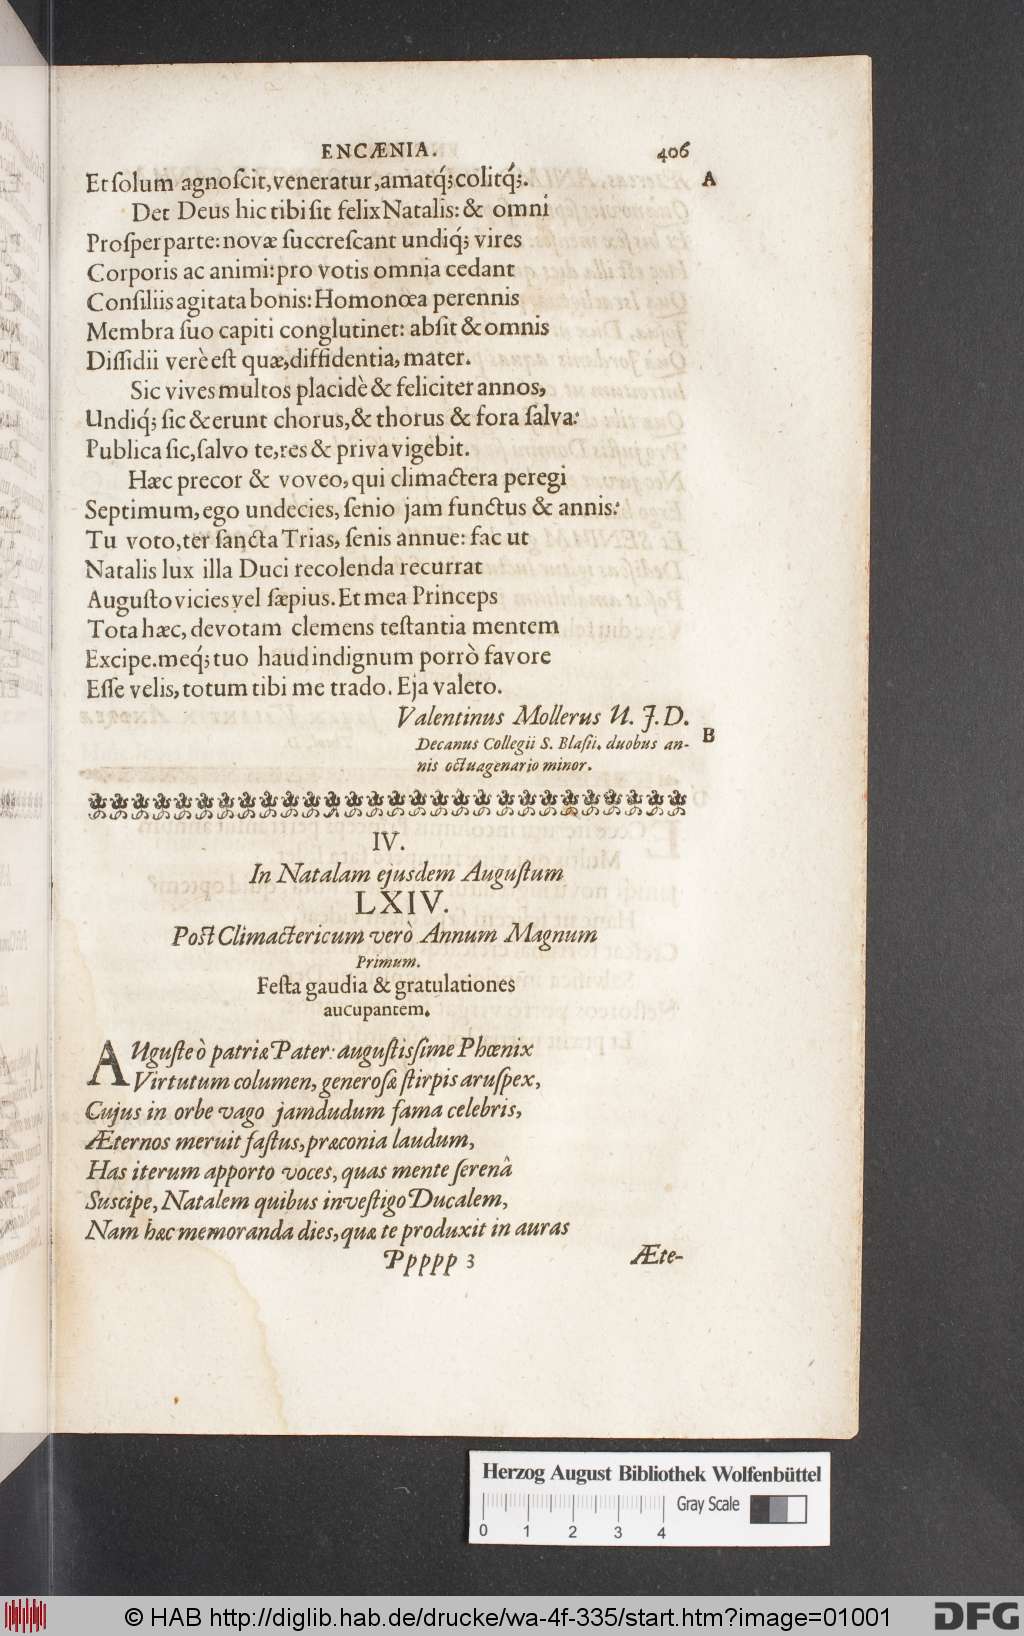 ENCÆNIA. 406
Et ſolum agnoſcit, veneratur, amatq́; colitq́;. A
Det Deus hic tibi ſit felix Natalis: & omni
Proſper parte: novæ ſuccreſcant undiq́; vires
Corporis ac animi: pro votis omnia cedant
Conſiliis agitata bonis: Homonœa perennis
Membra ſuo capiti conglutinet: abſit & omnis
Diſſidii verè eſt quæ, diffidentia, mater.
Sic vives multos placidè & feliciter annos,
Undiq́; ſic & erunt chorus, & thorus & fora ſalva:
Publica ſic, ſalvo te, res & priva vigebit.
Hæc precor & voveo, qui climactera peregi
Septimum, ego undecies, ſenio jam functus & annis:
Tu voto, ter ſancta Trias, ſenis annue: fac ut
Natalis lux illa Duci recolenda recurrat
Auguſto vicies vel ſæpius. Et mea Princeps
Tota hæc, devotam clemens teſtantia mentem
Excipe. meq́; tuo haud indignum porrò favore
Eſſe velis, totum tibi me trado. Eja valeto.
Valentinus Mollerus U. J. D.
Decanus Collegii S. Blaſii, duobus an- B
nis octuagenario minor.
IV.
In Natalam ejusdem Auguſtum
LXIV.
Poſt Climactericum verò Annum Magnum
Primum.
Feſta gaudia & gratulationes
aucupantem.
AUguſte ò patriæ Pater: auguſtisſime Phœnix
Virtutum columen, generoſæ ſtirpis aruſpex,
Cujus in orbe vago jamdudum fama celebris,
Æternos meruit faſtus, præconia laudum,
Has iterum apporto voces, quas mente ſerenâ
Suscipe, Natalem quibus inveſtigo Ducalem,
Nam hæc memoranda dies, quæ te produxit in auras
Ppppp 3 Æte-
Herzog August Bibliothek Wolfenbüttel
Gray Scale
0 1 2 3 4
© HAB http://diglib.hab.de/drucke/wa-4f-335/start.htm?image=01001 DFG